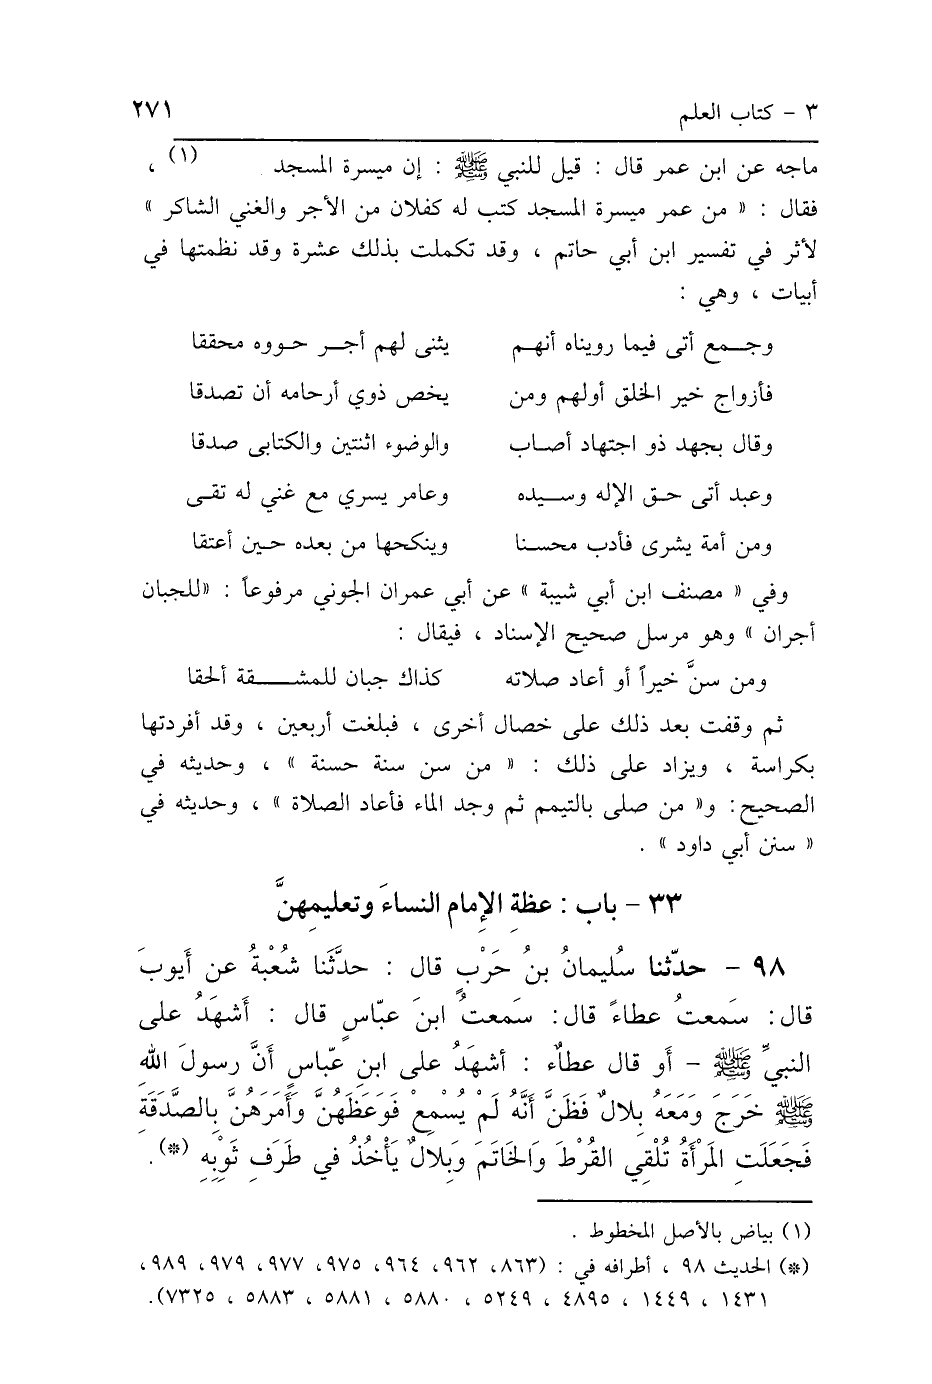 ٣ - كتاب العلم ٢٧١
ماجه عن ابن عمر قال : قيل للنبي ﷺ : إن ميسرة المسجد (١) ،
فقال : « من عمر ميسرة المسجد كتب له كفلان من الأجر والغني الشاكر »
لأثر في تفسير ابن أبي حاتم ، وقد تكملت بذلك عشرة وقد نظمتها في
أبيات ، وهي :
وجـــمع أتى فيما رويناه أنهـم يثنى لهم أجـر حـووه محققا
فأزواج خير الخلق أولهم ومن يخص ذوي أرحامه أن تصدقا
وقال بجهد ذو اجتهاد أصـاب والوضوء اثنتين والكتابى صدقا
وعبد أتى حـق الإله وسـيده وعامر يسري مع غني له تقـى
ومن أمة يشرى فأدب محسـنا وينكحها من بعده حـين أعتقا
وفي « مصنف ابن أبي شيبة » عن أبي عمران الجوني مرفوعاً : «للجبان
أجران » وهو مرسل صحيح الإسناد ، فيقال :
ومن سنَّ خيراً أو أعاد صلاته كذاك جبان للمشـــقة ألحقا
ثم وقفت بعد ذلك على خصال أخرى ، فبلغت أربعين ، وقد أفردتها
بكراسة ، ويزاد على ذلك : « من سن سنة حسنة » ، وحديثه في
الصحيح: و« من صلى بالتيمم ثم وجد الماء فأعاد الصلاة » ، وحديثه في
« سنن أبي داود » .
٣٣ - باب : عظةِ الإمامِ النساءَ وتعليمِهنَّ
٩٨ - حدّثنا سُليمانُ بنُ حَرْبٍ قال : حدَّثَنا شُعْبةُ عن أَيوبَ
قال: سَمعتُ عطاءً قال: سَمعتُ ابنَ عبّاسٍ قال : أَشهَدُ على
النبيِّ ﷺ - أَو قال عطاءٌ : أشهَدُ على ابنِ عبّاسٍ أَنَّ رسولَ اللهِ
ﷺ خَرَجَ وَمَعَهُ بِلالٌ فَظَنَّ أَنَّهُ لَمْ يُسْمِعْ فَوَعَظَهُنَّ وَأَمَرَهُنَّ بِالصَّدَقَةِ
فَجَعَلَتِ المَرْأَةُ تُلْقِي القُرْطَ وَالخَاتَمَ وَبِلالٌ يَأْخُذُ في طَرَفِ ثَوْبِهِ (*).
(١) بياض بالأصل المخطوط .
(*) الحديث ٩٨ ، أطرافه في : (٨٦٣، ٩٦٢، ٩٦٤، ٩٧٥، ٩٧٧، ٩٧٩، ٩٨٩،
١٤٣١ ، ١٤٤٩ ، ٤٨٩٥ ، ٥٢٤٩ ، ٥٨٨٠ ، ٥٨٨١ ، ٥٨٨٣ ، ٧٣٢٥).